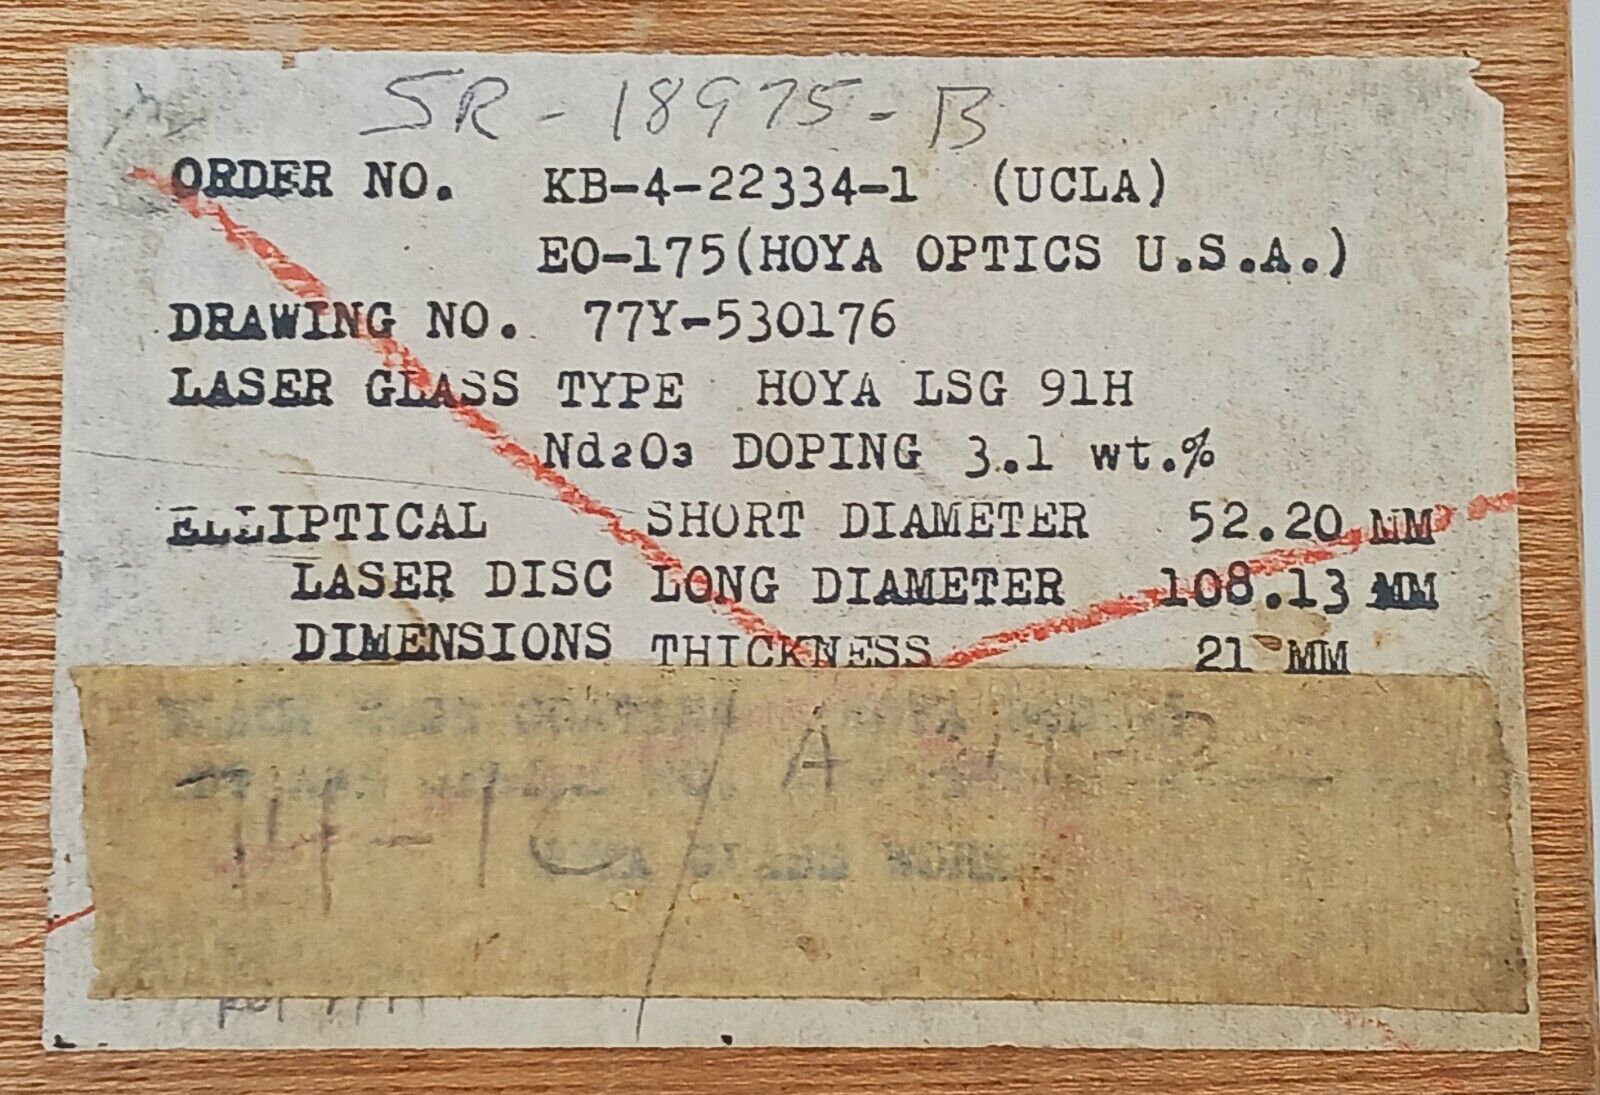 SR-18975-B
ORDER NO. KB-4-22334-1 (UCLA)
EO-175(HOYA OPTICS U.S.A.)
DRAWING NO. 77Y-530176
LASER GLASS TYPE HOYA LSG 91H
Nd2O3 DOPING 3.1 wt.%
ELLIPTICAL SHORT DIAMETER 52.20 MM
LASER DISC LONG DIAMETER 108.13 MM
DIMENSIONS THICKNESS 21 MM
A